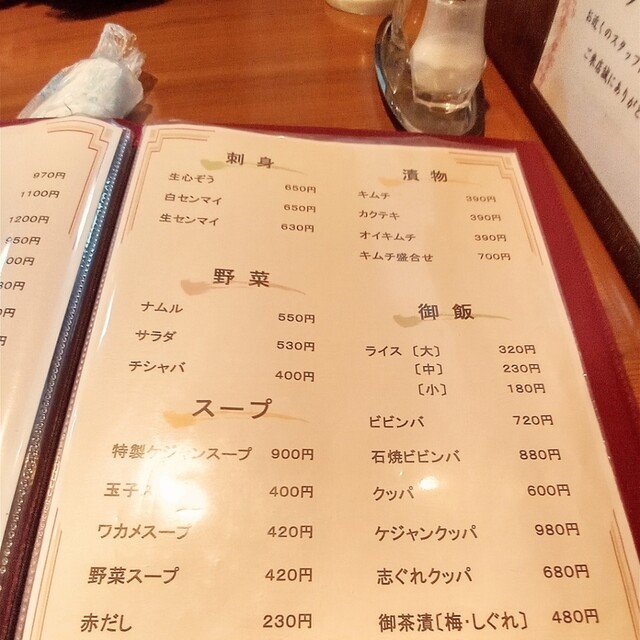 970円
1100円
1200円
刺身
生心ぞう 650円
白センマイ 650円
生センマイ 630円
野菜
ナムル 550円
サラダ 530円
チシャバ 400円
スープ
特製ケジャンスープ 900円
玉子 400円
ワカメスープ 420円
野菜スープ 420円
赤だし 230円
漬物
キムチ 390円
カクテキ 390円
オイキムチ 390円
キムチ盛合せ 700円
御飯
ライス〔大〕 320円
〔中〕 230円
〔小〕 180円
ビビンバ 720円
石焼ビビンバ 880円
クッパ 600円
ケジャンクッパ 980円
志ぐれクッパ 680円
御茶漬〔梅・しぐれ〕 480円
お近くのスタッフ
ご来店誠にありがと